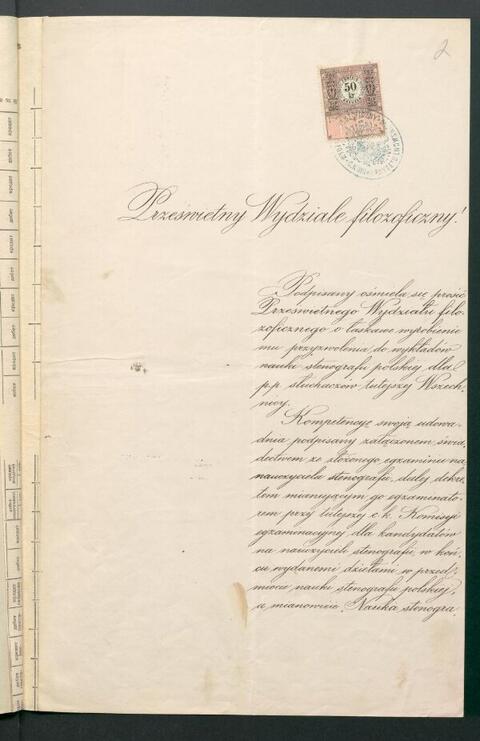 2
50
kr
Prześwietny Wydziale filozoficzny!
Podpisany ośmiela się prosić
Prześwietnego Wydziału filo-
zoficznego o łaskawe wyrobienie
mu przyzwolenia do wykładów
nauki stenografii polskiej dla
p.p. słuchaczów tutejszej Wszech-
nicy.
Kompetencyę swoją udowa-
dnia podpisany załączonem świa-
dectwem ze złożonego egzaminu na
nauczyciela stenografii, dalej dekre-
tem mianującym go egzaminato-
rem przy tutejszej c. k. Komisyi
egzaminacyjnej dla kandydatów
na nauczycieli stenografii, w koń-
cu wydanemi dziełami w przed-
miocie nauki stenografii polskiej,
a mianowicie: Nauka stenogra-